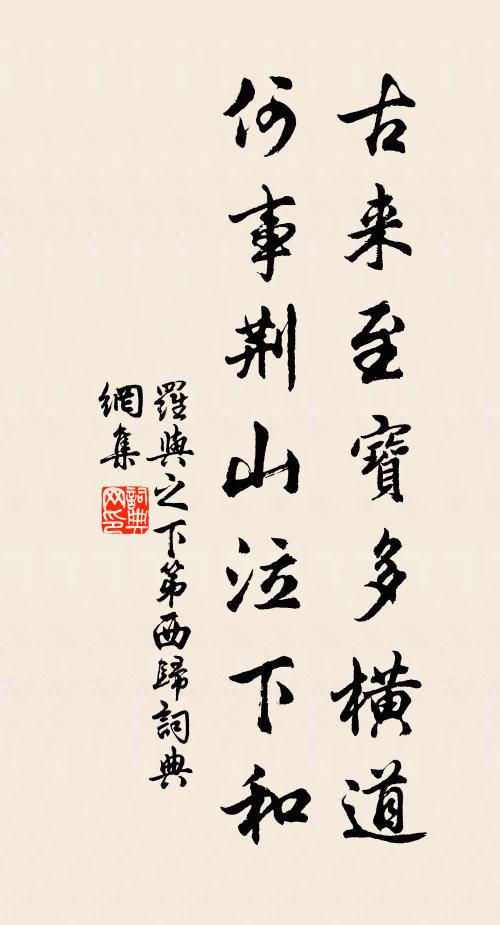 古来至寶多橫道
何事荆山泣下和
羅與之下第西歸詞典
網集
詞典
网印